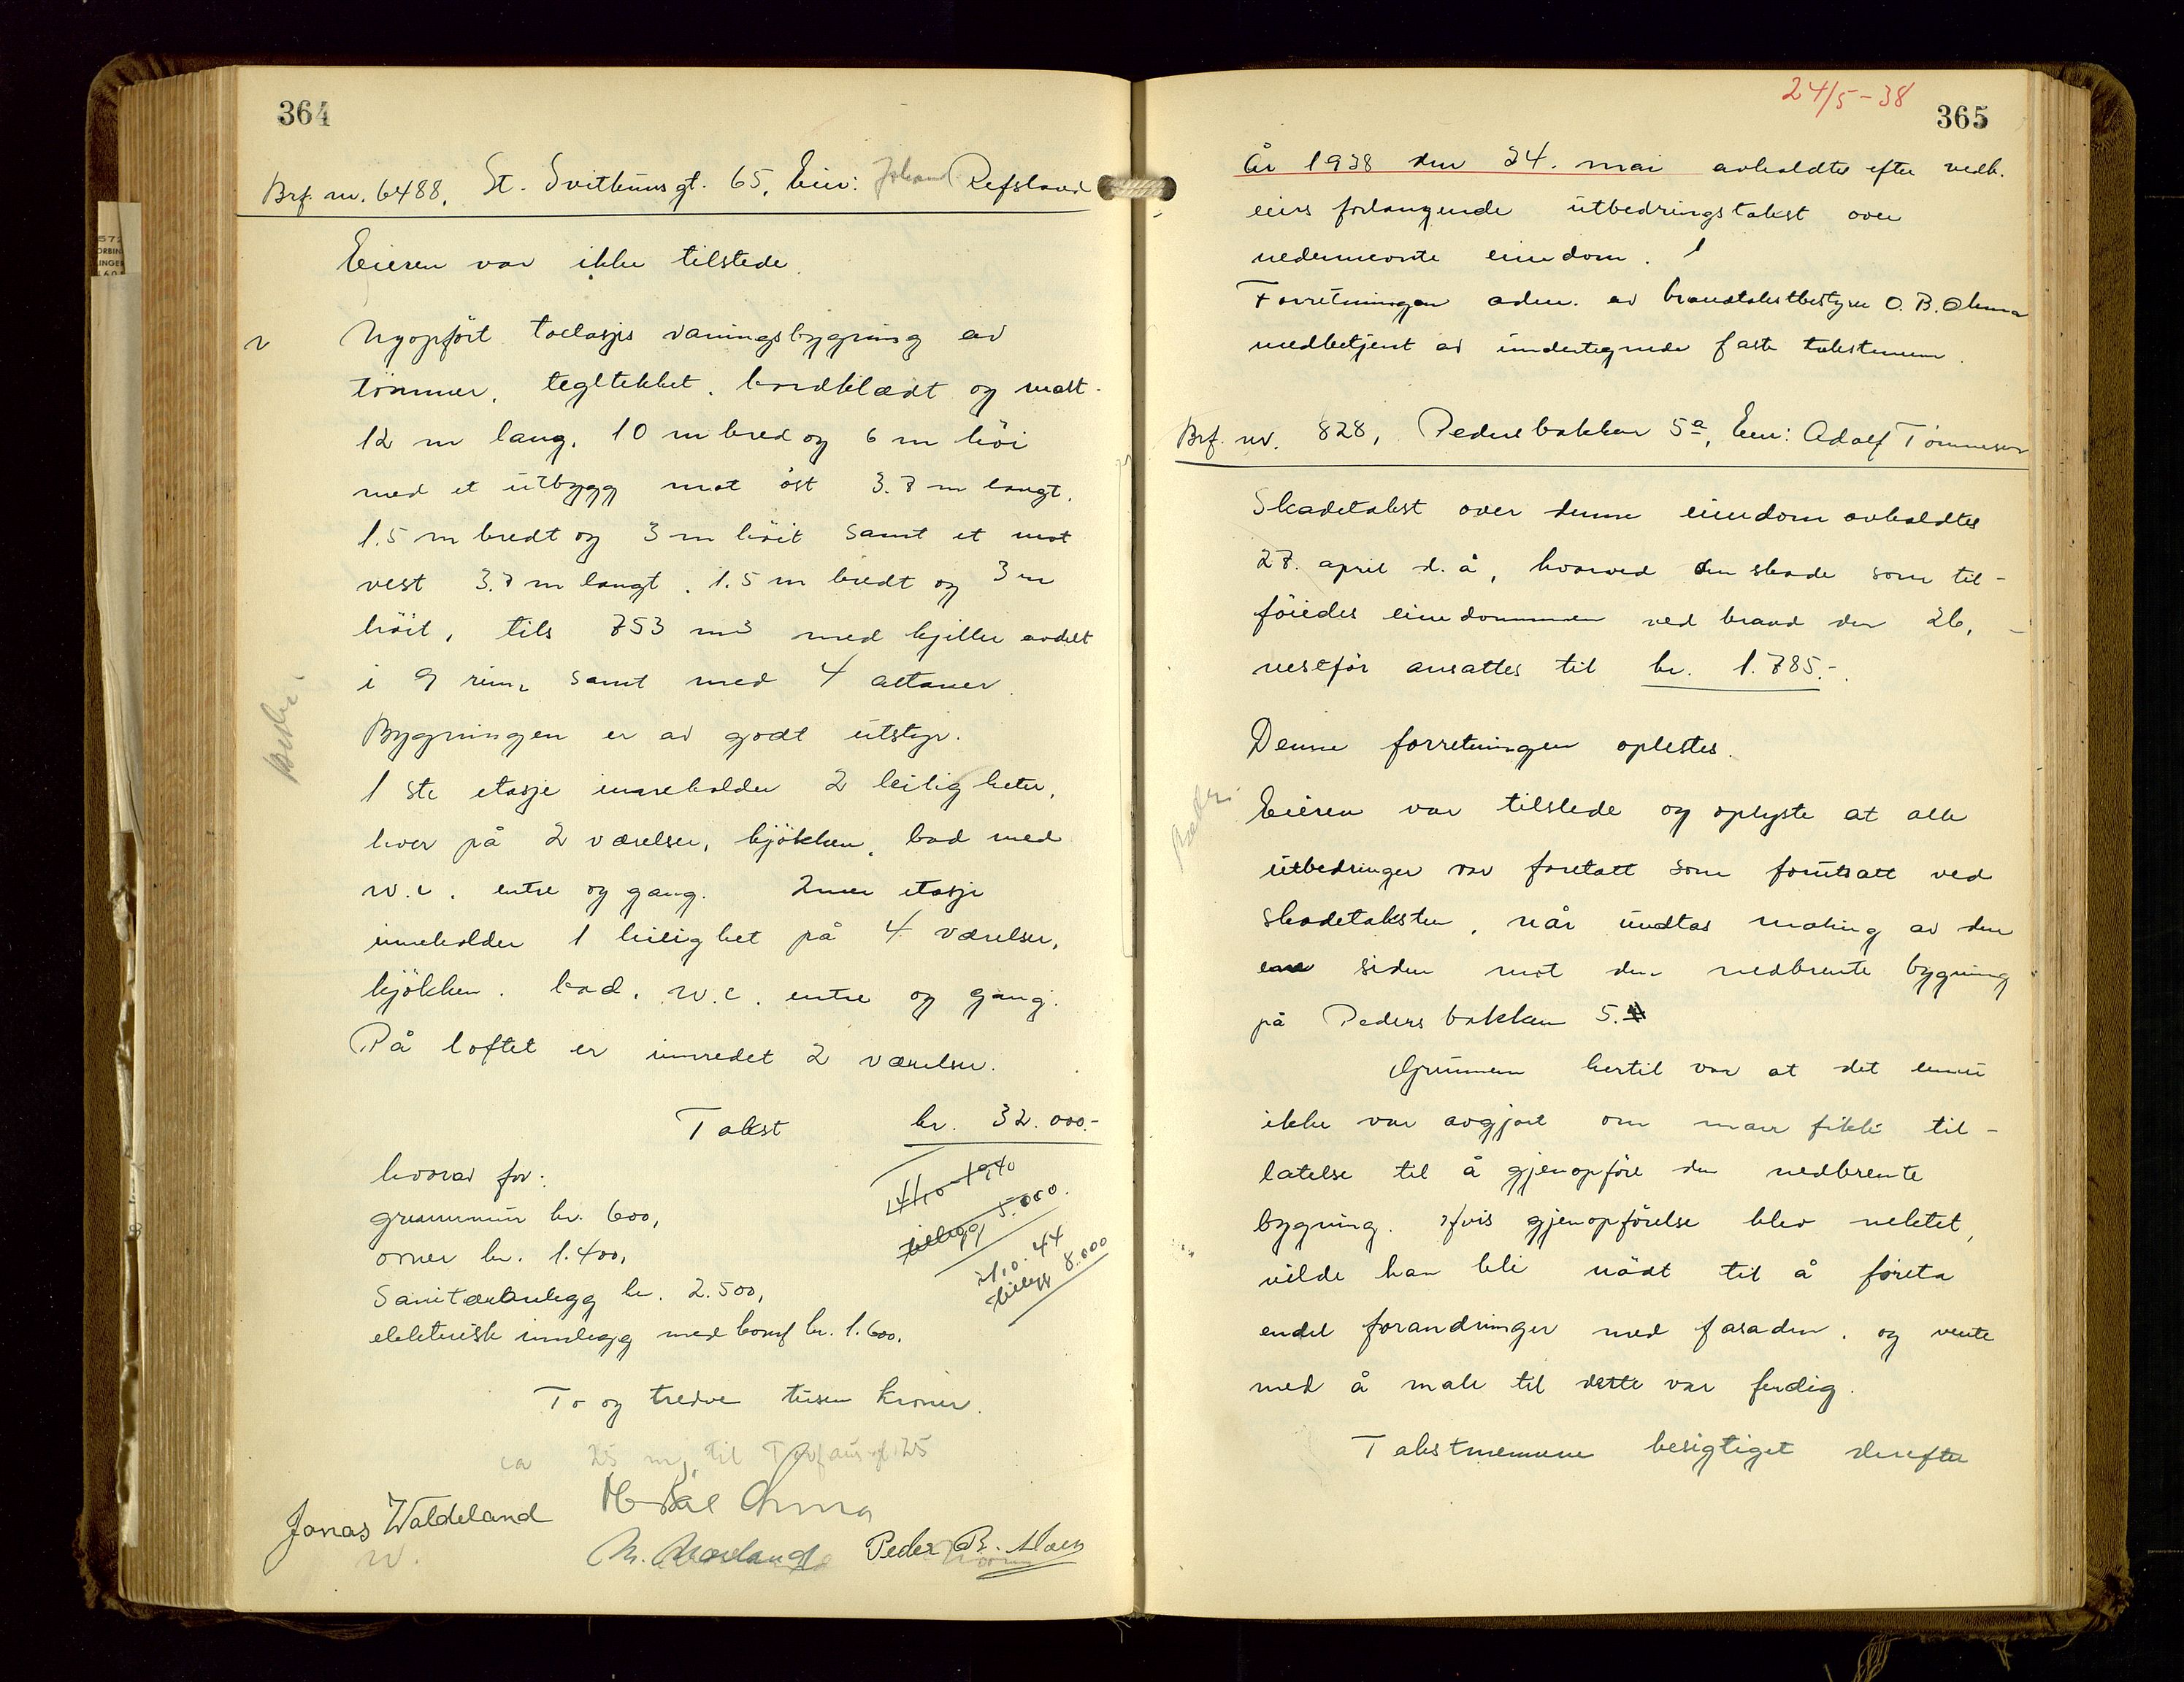 364
Brf. nr. 6488, St. Svithuns gt. 65, Eier: Johan Refsland
Eieren var ikke tilstede.
Nyopført toetasjes vaningsbygning av
tømmer, tegltekket, bordklædt og malt.
12 m lang, 10 m bred og 6 m høi
med et utbygg mot øst 3.7 m langt,
1.5 m bredt og 3 m høit samt et mot
vest 3.7 m langt, 1.5 m bredt og 3 m
høit, tils 753 m3 med kjeller avdelt
i 9 rum, samt med 4 altaner.
Bygningen er av godt utstyr.
1 ste etasje inneholder 2 leiligheter,
hver på 2 værelser, kjøkken, bad med
w.c. entre og gang. 2nen etasje
inneholder 1 leilighet på 4 værelser,
kjøkken, bad, w.c. entre og gang.
På loftet er innredet 2 værelser.
Takst kr. 32.000.-
hvorav for:
grunnmur kr. 600,
ovner kr. 1.400,
Sanitæranlegg kr. 2.500,
elekterisk innlegg med komf kr. 1.600.
14/10-1940
tillegg 5.000.
2/10.44
tillegg 8.000
To og tredve tusen kroner.
ca 25 m, til
Jonas Waldeland
Peder B.
365
24/5-38
År 1938 den 24. mai avholdtes efter vedk.
eiers forlangende utbedringstakst over
nedennevnte eiendom.
Forretningen adm. av brandtakstbestyrer O.B. Ohma
medbetjent av undertegnede faste takstmenn.
Brf. nr. 828, Pedersbakken 5a, Eier: Adolf Tønnesen
Skadetakst over denne eiendom avholdtes
27. april d.å, hvorved den skade som til-
føiedes eiendommen ved brand den 26.
nestfør ansattes til kr. 1.785.-
Denne forretningen oplestes.
Eieren var tilstede og oplyste at alle
utbedringer var foretatt som forutsatt ved
skadetaksten, når undtas maling av den
ene siden mot den nedbrente bygning
på Pedersbakken 5.
Grunnen hertil var at det ennu
ikke var avgjort om man fikk til-
latelse til å gjenopføre den nedbrente
bygning. Hvis gjenopførelse blev nektet,
vilde han bli nødt til å foreta
endel forandringer med fasaden, og vente
med å male til dette var ferdig.
Takstmennene besigtiget derefter